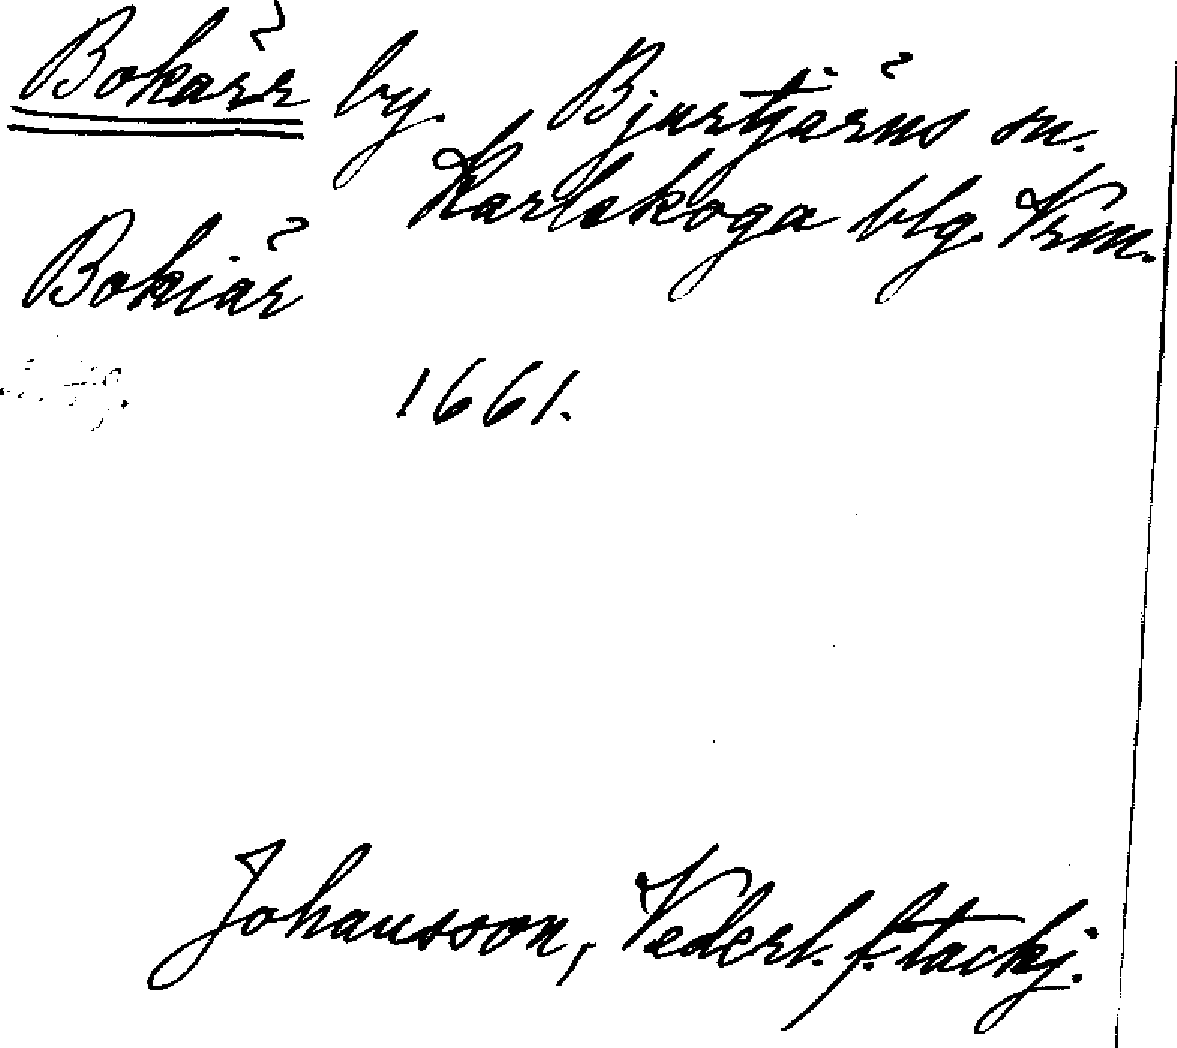 Bokärr by Bjurtjärns sn.
Karlskoga blg. Vrm.
Bokiär
1661.
Johansson, Vederl. f. tackj.